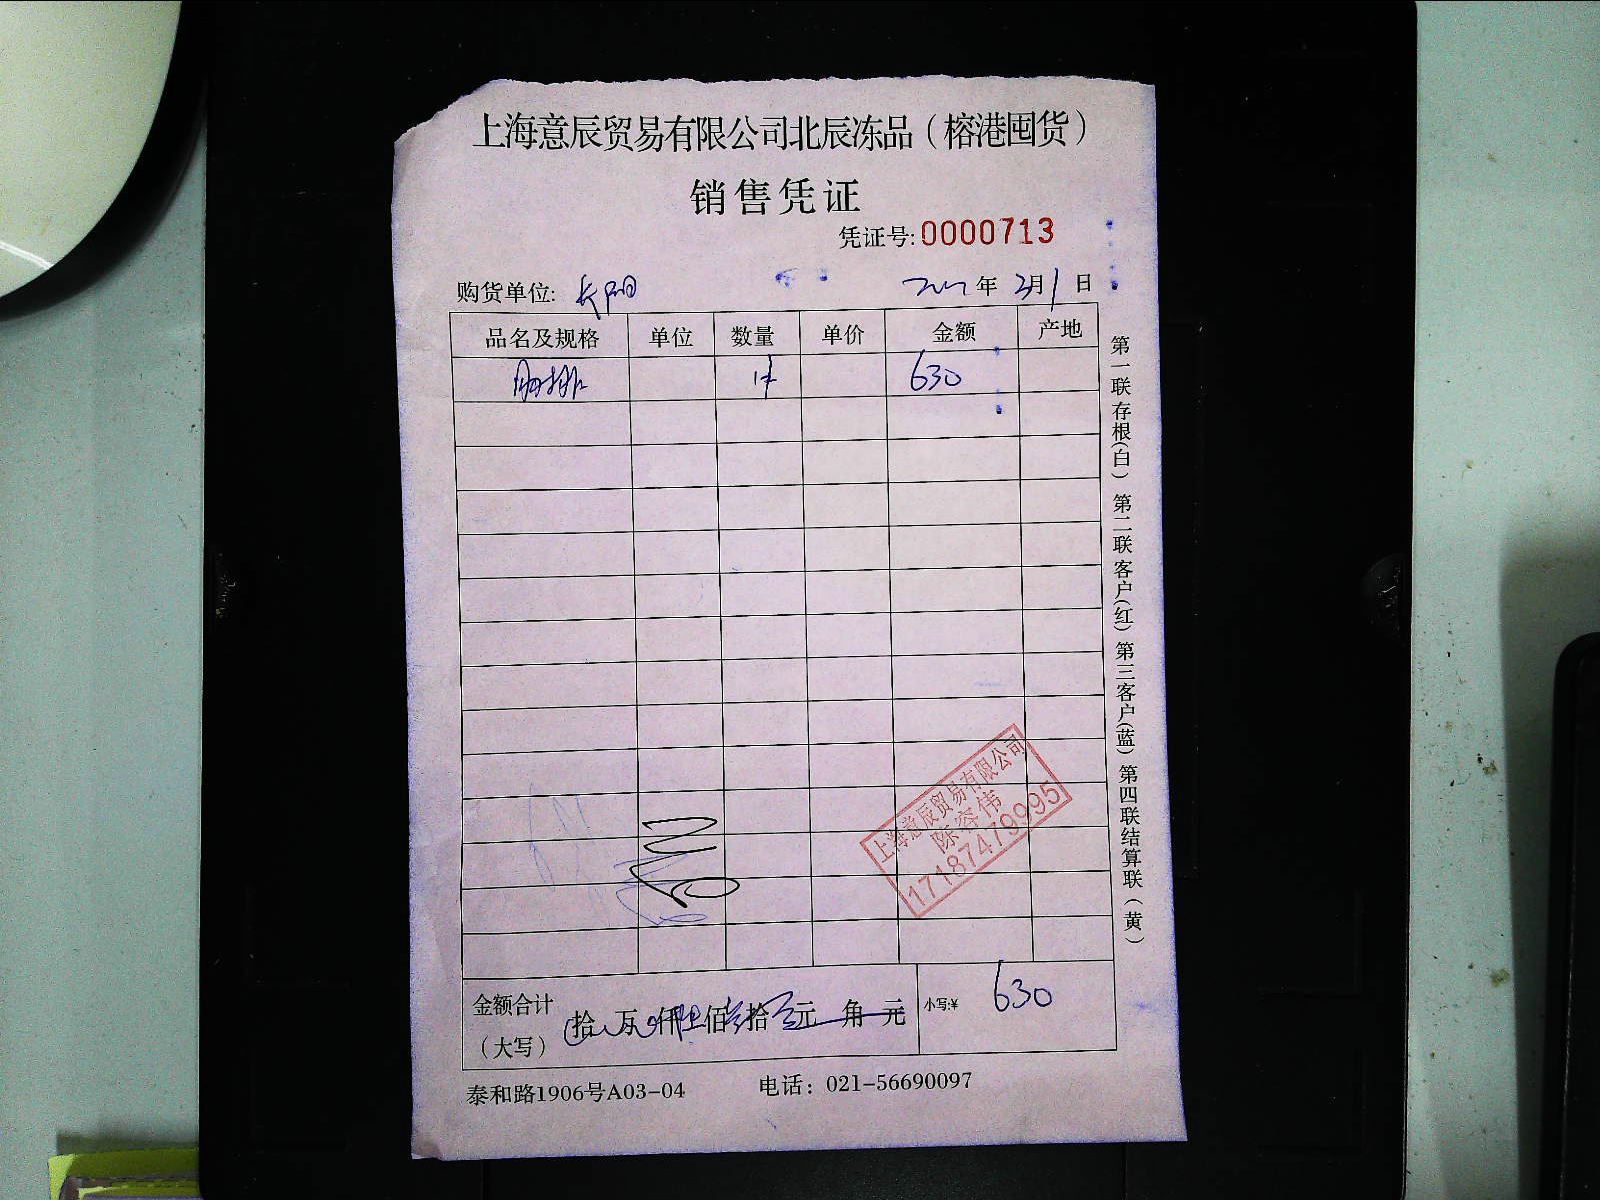 上海意辰贸易有限公司北辰冻品（榕港囤货）
销售凭证
凭证号:0000713
购货单位: 长阳 年 3月1日
品名及规格 单位 数量 单价 金额 产地
1件 630
上海意辰贸易有限公司
陈容伟
17187479995
金额合计（大写） 拾 万 仟 陆佰叁拾 元 角 元 小写:¥ 630
泰和路1906号A03-04 电话：021-56690097
第一联存根（白） 第二联客户（红） 第三客户（蓝） 第四联结算联（黄）